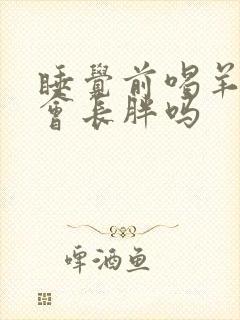 睡覺前喝羊
會長胖吗
啤酒鱼